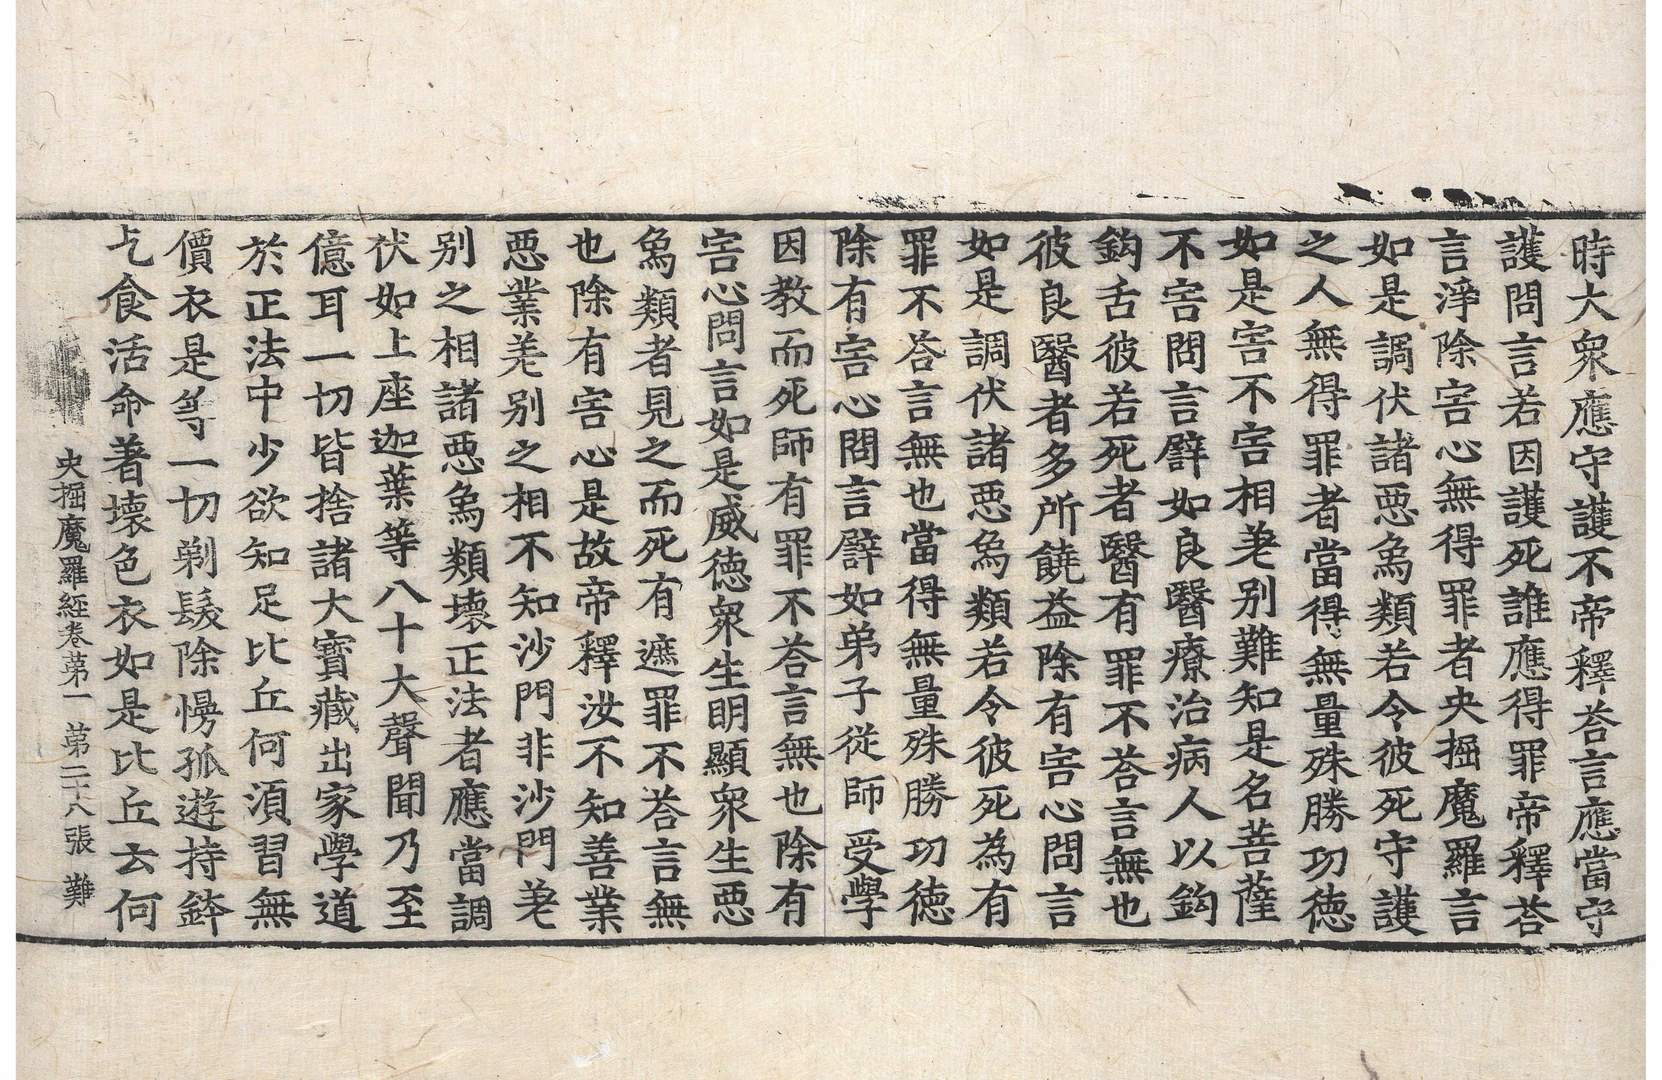 時大衆應守護不帝釋荅言應當守
護問言若因護死誰應得罪帝釋荅
言淨除害心無得罪者央掘魔羅言
如是調伏諸惡象類若令彼死守護
之人無得罪者當得無量殊勝功徳
如是害不害相差别難知是名菩薩
不害問言譬如良醫療治病人以鈎
鈎舌彼若死者醫有罪不荅言無也
彼良醫者多所饒益除有害心問言
如是調伏諸惡象類若令彼死為有
罪不荅言無也當得無量殊勝功徳
除有害心問言譬如弟子從師受學
因教而死師有罪不荅言無也除有
害心問言如是威徳衆生明顯衆生惡
象類者見之而死有遮罪不荅言無
也除有害心是故帝釋汝不知善業
惡業差别之相不知沙門非沙門差
别之相諸惡象類壞正法者應當調
伏如上座迦葉等八十大聲聞乃至
億耳一切皆捨諸大寶藏出家學道
於正法中少欲知足比丘何湏習無
價衣是等一切剃髮除慢孤遊持鉢
乞食活命著壞色衣如是比丘云何
央掘魔羅經卷第一　第二十八張　難